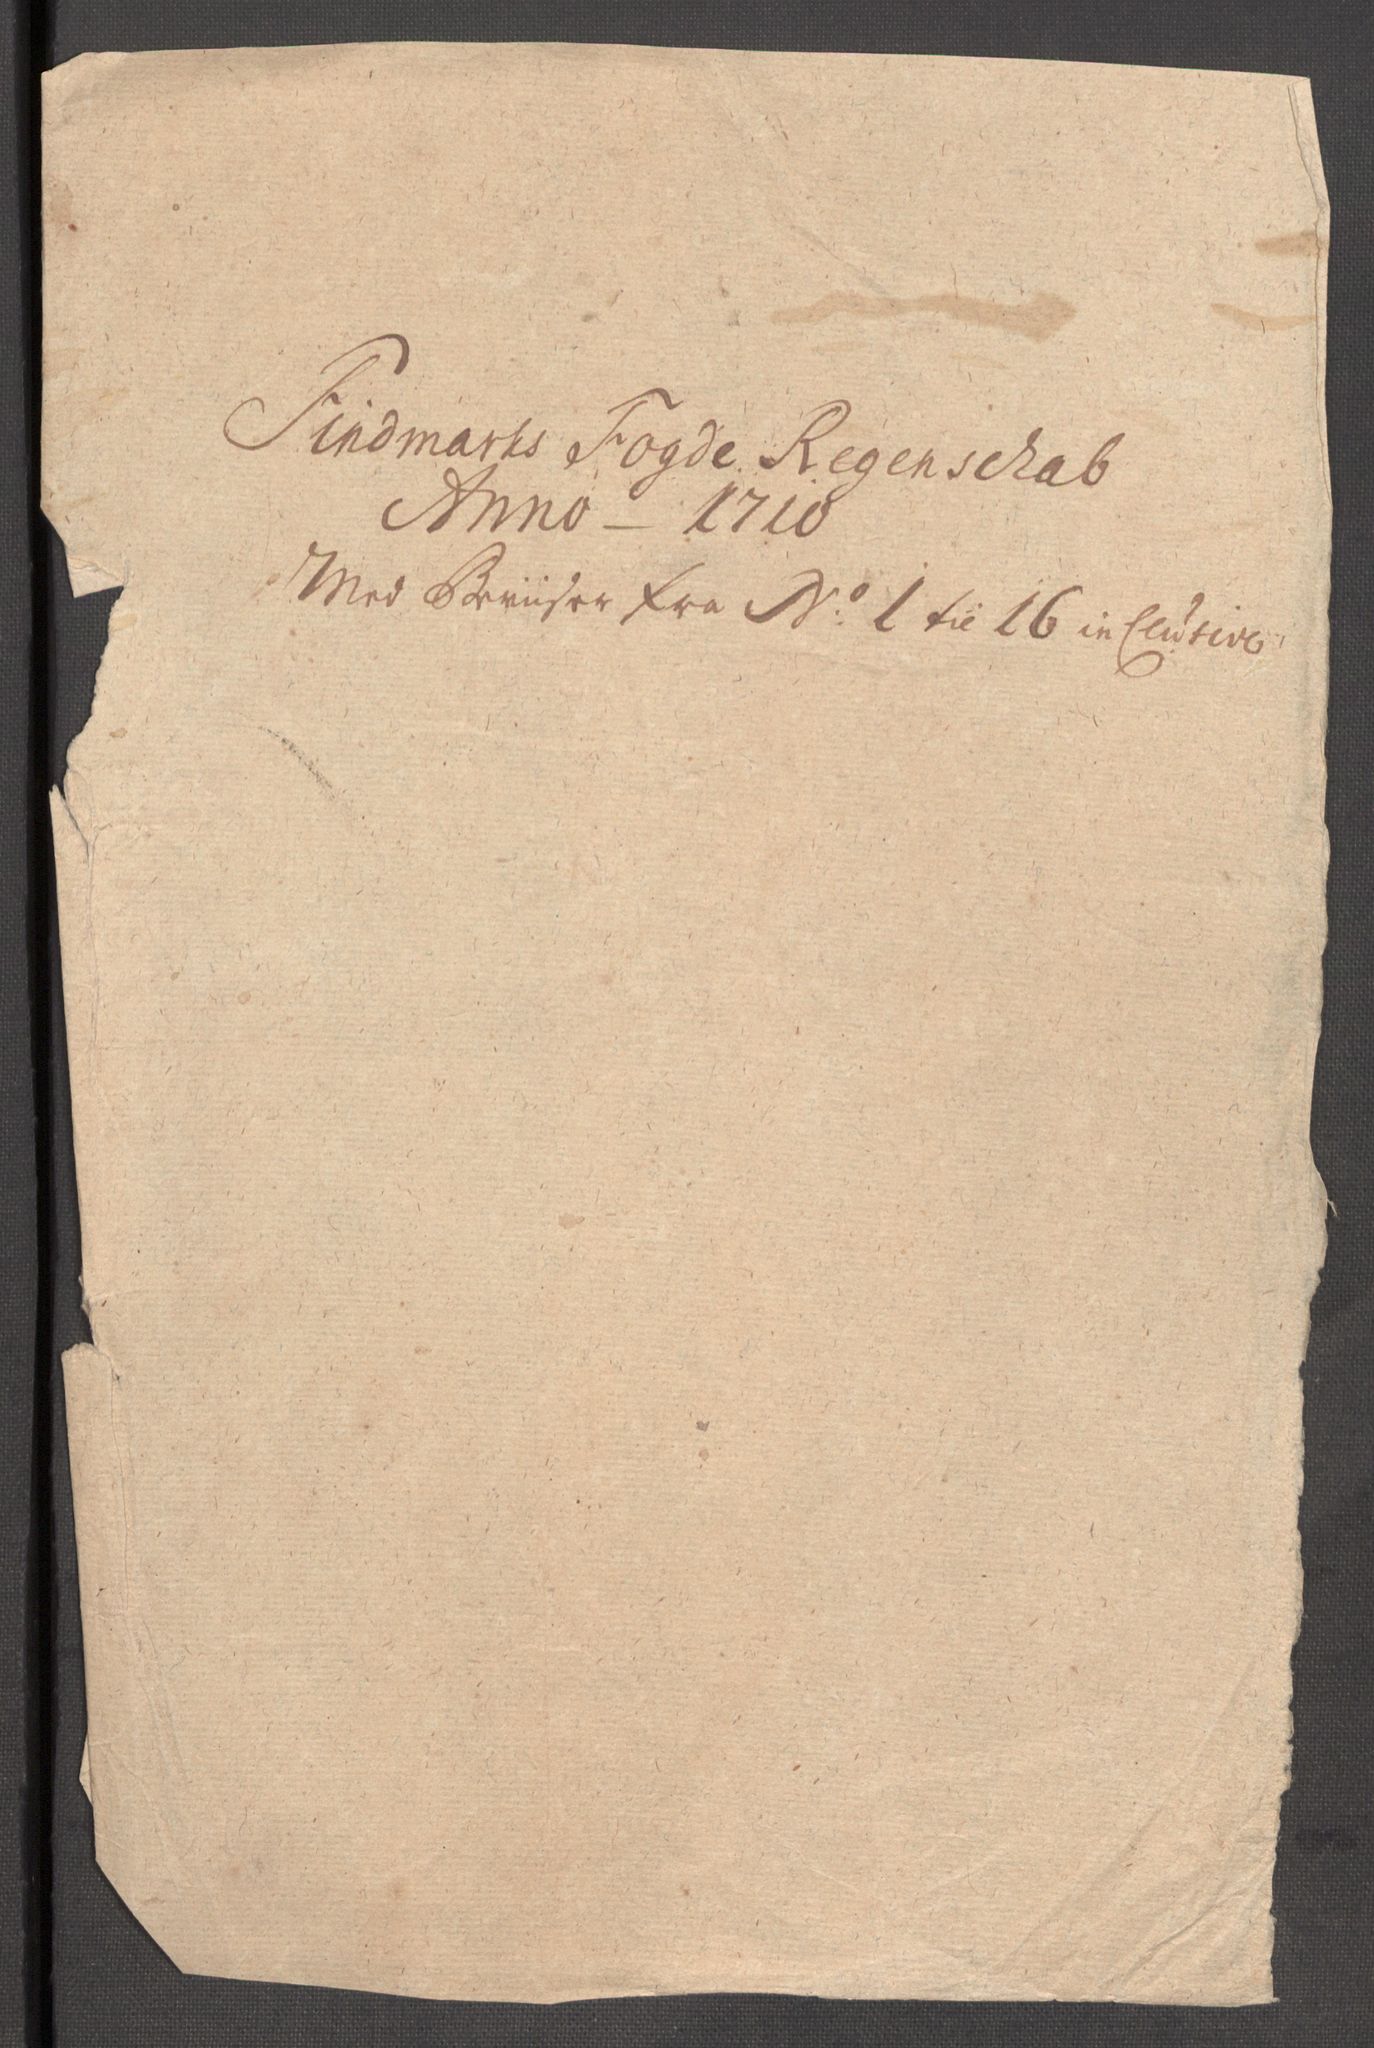 Findmarks Fogde Regenschab
Anno – 1710
Med Beviiser fra No. 1 til 16 inclusive